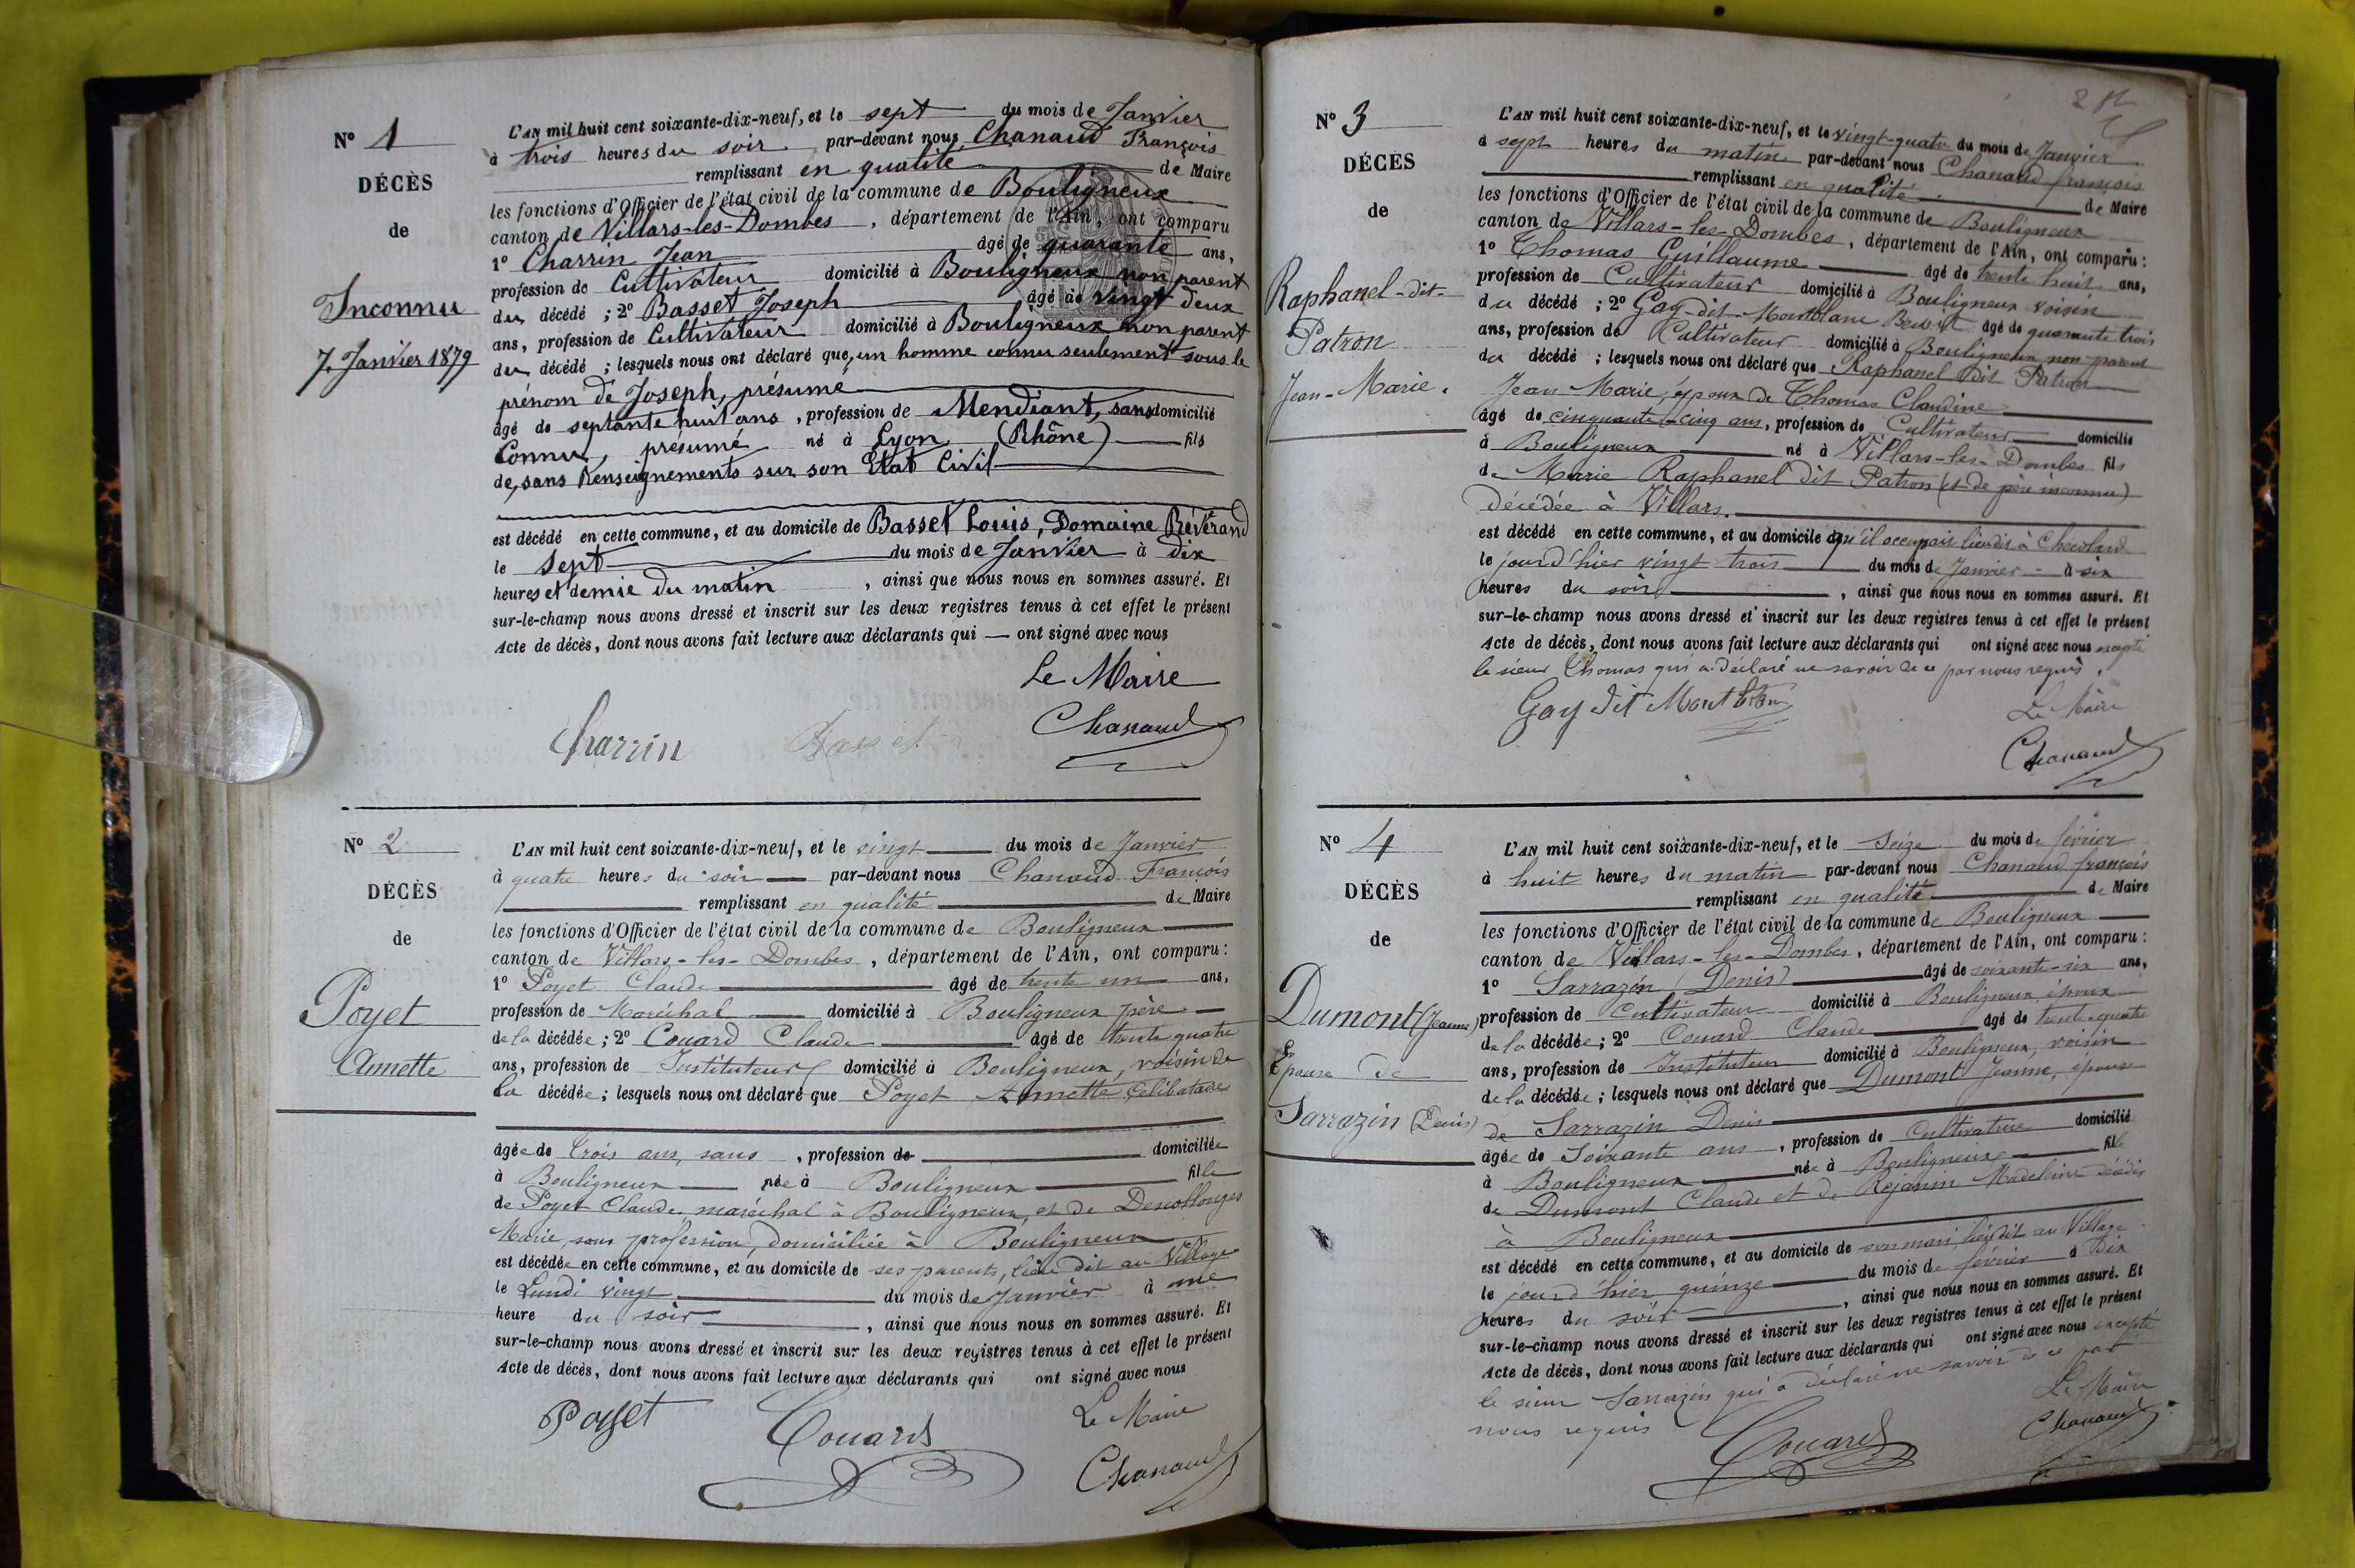 N° 1
DÉCÈS
de
Inconnu
7. Janvier 1879
L'AN mil huit cent soixante-dix-neuf, et le sept du mois de Janvier
à trois heures du soir par-devant nous Chanaud François
remplissant en qualité de Maire
les fonctions d'Officier de l'état civil de la commune de Bouligneux
canton de Villars-les-Dombes, département de l'Ain, ont comparu
1° Charrin Jean âgé de quarante ans,
profession de Cultivateur domicilié à Bouligneux non parent
du décédé ; 2° Basset Joseph âgé de vingt deux
ans, profession de Cultivateur domicilié à Bouligneux non parent
du décédé ; lesquels nous ont déclaré que, un homme connu seulement sous le
prénom de Joseph, présumé
âgé de septante huit ans, profession de Mendiant, sans domicilié
Connu, présumé né à Lyon (Rhône) fils
de, sans Renseignements sur son Etat Civil
est décédé en cette commune, et au domicile de Basset Louis, Domaine Révérand
le sept du mois de Janvier à dix
heures et demie du matin, ainsi que nous nous en sommes assuré. Et
sur-le-champ nous avons dressé et inscrit sur les deux registres tenus à cet effet le présent
Acte de décès, dont nous avons fait lecture aux déclarants qui — ont signé avec nous
Le Maire
Charrin Basset Chanaud
N° 2
DÉCÈS
de
Poyet
Annette
L'AN mil huit cent soixante-dix-neuf, et le vingt du mois de Janvier
à quatre heures du soir par-devant nous Chanaud François
remplissant en qualité de Maire
les fonctions d'Officier de l'état civil de la commune de Bouligneux
canton de Villars-les-Dombes, département de l'Ain, ont comparu :
1° Poyet Claude âgé de trente un ans,
profession de Maréchal domicilié à Bouligneux père
de la décédée ; 2° Couard Claude âgé de trente quatre
ans, profession de Instituteur domicilié à Bouligneux, voisin de
la décédée ; lesquels nous ont déclaré que Poyet Annette Célibataire
âgée de trois ans, sans, profession de domiciliée
à Bouligneux née à Bouligneux fille
de Poyet Claude, maréchal à Bouligneux, et de Descollonges
Marie, sans profession, domiciliée à Bouligneux
est décédée en cette commune, et au domicile de ses parents, lieu dit au Village
le Lundi vingt du mois de Janvier à une
heure du soir, ainsi que nous nous en sommes assuré. Et
sur-le-champ nous avons dressé et inscrit sur les deux registres tenus à cet effet le présent
Acte de décès, dont nous avons fait lecture aux déclarants qui ont signé avec nous
Poyet Couard Le Maire
Chanaud
N° 3
DÉCÈS
de
Raphanel-dit-
Patron
Jean-Marie.
L'AN mil huit cent soixante-dix-neuf, et le vingt-quatre du mois de Janvier
à sept heures du matin par-devant nous Chanaud françois
remplissant en qualité de Maire
les fonctions d'Officier de l'état civil de la commune de Bouligneux
canton de Villars-les-Dombes, département de l'Ain, ont comparu :
1° Thomas Guillaume âgé de trente huit ans,
profession de Cultivateur domicilié à Bouligneux voisin
du décédé ; 2° Gay-dit-Montblanc Benoit âgé de quarante trois
ans, profession de Cultivateur domicilié à Bouligneux non parent
du décédé ; lesquels nous ont déclaré que Raphanel dit Patron
Jean Marie, époux de Thomas Claudine
âgé de cinquante-cinq ans, profession de Cultivateur domicilié
à Bouligneux né à Villars-les-Dombes fils
de Marie Raphanel dit Patron (et de père inconnu)
Décédée à Villars.
est décédé en cette commune, et au domicile qu'il occupait lieudit à
le jour d'hier vingt trois du mois de Janvier à six
heures du soir, ainsi que nous nous en sommes assuré. Et
sur-le-champ nous avons dressé et inscrit sur les deux registres tenus à cet effet le présent
Acte de décès, dont nous avons fait lecture aux déclarants qui ont signé avec nous excepté
le sieur Thomas qui a déclaré ne savoir de ce par nous requis.
Gay dit Montblan Le Maire
Chanaud
N° 4
DÉCÈS
de
Dumont (Jeanne)
Epouse de
Sarrazin (Denis)
L'AN mil huit cent soixante-dix-neuf, et le Seize du mois de février
à huit heures du matin par-devant nous Chanaud françois
remplissant en qualité de Maire
les fonctions d'Officier de l'état civil de la commune de Bouligneux
canton de Villars-les-Dombes, département de l'Ain, ont comparu :
1° Sarrazin (Denis) âgé de soixante-six ans,
profession de Cultivateur domicilié à Bouligneux, époux
de la décédée ; 2° Couard Claude âgé de trente-quatre
ans, profession de Instituteur domicilié à Bouligneux, voisin
de la décédée ; lesquels nous ont déclaré que Dumont Jeanne, épouse
de Sarrazin Denis
âgée de Soixante ans, profession de Cultivateur domicilié
à Bouligneux née à Bouligneux fille
de Dumont Claude et de Rejanin Madeleine décédés
à Bouligneux
est décédé en cette commune, et au domicile de son mari, lieu dit au Village
le jour d'hier quinze du mois de février à Dix
heures du soir, ainsi que nous nous en sommes assuré. Et
sur-le-champ nous avons dressé et inscrit sur les deux registres tenus à cet effet le présent
Acte de décès, dont nous avons fait lecture aux déclarants qui ont signé avec nous excepté
le sieur Sarrazin qui a déclaré ne savoir de ce par
nous requis Le Maire
Couard Chanaud